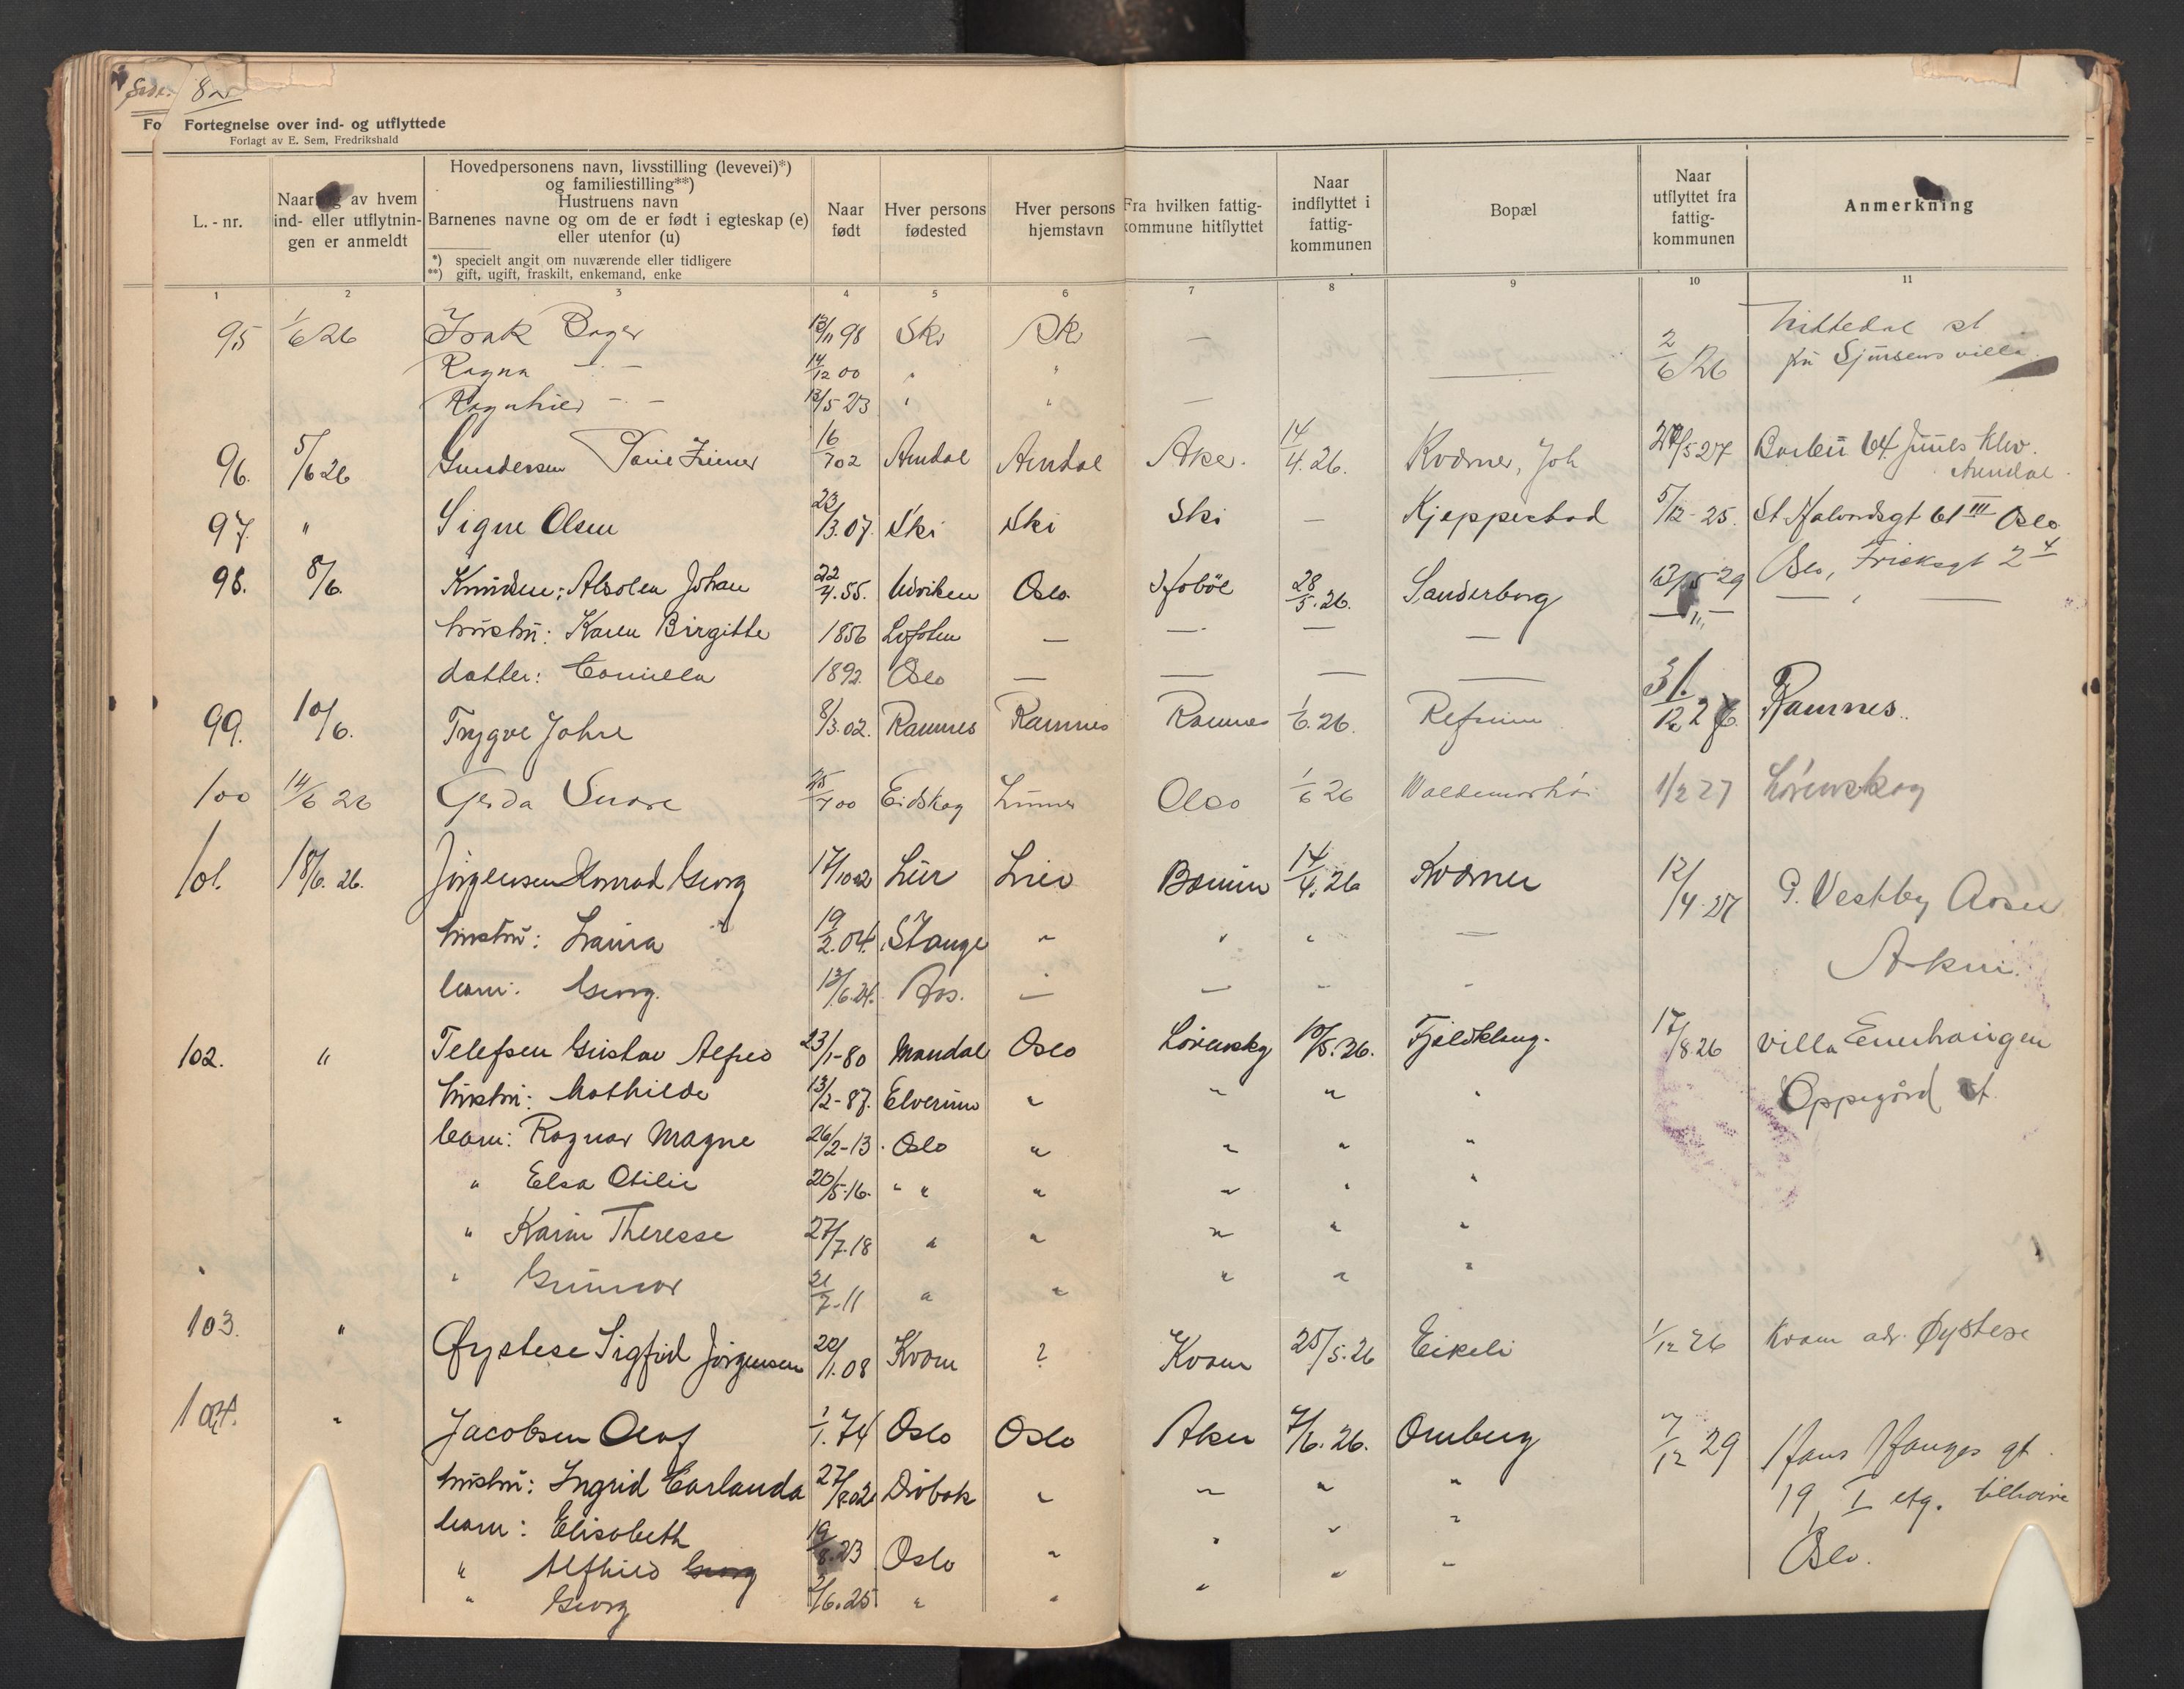 Side. 8
Fo Fortegnelse over ind- og utflyttede
Forlagt av E. Sem, Fredrikshald
L. - nr.
Naar av hvem
ind- eller utflytnin-
gen er anmeldt
Hovedpersonens navn, livsstilling (levevei)*)
og familiestilling**)
Hustruens navn
Barnenes navne og om de er født i egteskap (e)
eller utenfor (u)
*) specielt angit om nuværende eller tidligere
**) gift, ugift, fraskilt, enkemand, enke
Naar
født
Hver persons
fødested
Hver persons
hjemstavn
Fra hvilken fattig-
kommune hitflyttet
Naar
indflyttet i
fattig-
kommunen
Bopæl
Naar
utflyttet fra
fattig-
kommunen
Anmerkning
1 2 3 4 5 6 7 8 9 10 11
95 1/6 26 Isak Bager 13/11 98 Ski Ski — 2/6 26 Nittedal st
Ragna — — 14/12 00 " " — Sjursens villa
Ragnhild — — 13/5 23 " " —
96. 5/6 26 Gundersen 16/7 02 Arendal Arendal Aker. 14/4. 26. Kværner, Joh 5 27 Barbu 64 Arendal.
97. " Signe Olsen 23/3. 07. Ski Ski Ski — Kjeppestad 5/12 - 25. St Halvardsgt 61 III Oslo
98. 8/6. Knudsen; Johan 22/4. 55. Oslo. Hobøl 28/5. 26. Sanderborg 13/5 29 Oslo, Fricksgt 2 4
hustru: Karen Birgitte 1856 Lofoten — — — — — " —
datter: Camilla 1892. Oslo — — — —
99. 10/6. Trygve Johre 8/3. 02. Ramnes Ramnes Ramnes 1/6. 26. Refsum 31/12 26 Ramnes.
100 14/6 26 Gerda 25/7 00 Eidskog Oslo 1/6 26 Waldemarhøi 1/2 27 Lørenskog
101. 18/6. 26. Jörgensen Konrad Georg 17/10 02 Lier Lier Bærum 14/4. 26 Kværner 12/4. 27 P. Vestby Aasen
hustru: Laura 19/2. 04. Stange " " " — Aker.
barn: Georg. 13/6. 24. Aas. — — " "
102. " Telefsen Gustav Alfred 23/1 - 80 Mandal Oslo Lørenskg 10/5. 26. Fjeldklang. 17/8. 26 Villa Enerhaugen
hustru: Mathilde 13/2 - 87. Elverum " " " " Oppegård st.
barn: Ragnar Magne 26/2 - 13. Oslo " " " "
" Elsa Otilie 20/5 - 16. " " " " " "
" Karin Theresse 27/7. 18 " " " " "
" Gunnar 21/7 - 11 " " " " "
103. " Øystese Sigfrid Jørgensen 20/1. 08 Kvam ? Kvam 25/5. 26 Eikeli 1/12 26 Kvam adr. Øystese
104. " Jacobsen Olaf 1/1. 74 Oslo Oslo Aker 7/6. 26. Ormberg 7/12 29 Hans Hauges gt.
hustru: Ingrid Earlanda 27/8. 02 Drøbak " " " " 19, I etg. tilhøire
barn: Elisabeth 19/8. 23 Oslo " " " " Oslo.
" Alfhild Georg
" Georg 2/6. 25. " " " " "